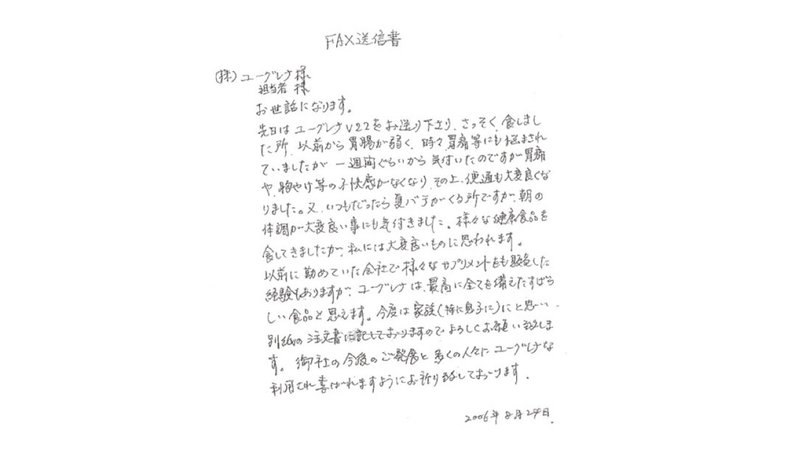 FAX送信書
(株)ユーグレナ様
担当者 様
お世話になります。
先日はユーグレナV22をお送り下さり、さっそく、食しまし
た所、以前から胃腸が弱く、時々胃痛等にも悩まされ
ていましたが 一週間ぐらいから 気付いたのですが胃痛
や、胸やけ等の不快感がなくなり、その上、便通も大変良くな
りました。又、いつもだったら夏バテがくる所ですが、朝の
体調が大変良い事にも気付きました。様々な健康食品を
食してきましたが、私には大変良いものに思われます。
以前に勤めていた会社で様々なサプリメントをも販売した
経験もありますが、ユーグレナは、最高に全てを備えたすばら
しい食品と思えます。今度は家族(特に息子に)にと思い、
別紙の注文書に記しておりますので、よろしくお願い致しま
す。御社の今後のご発展と多くの人々にユーグレナな
利用され喜ばれますようにお祈り致しております。
2006年8月24日.